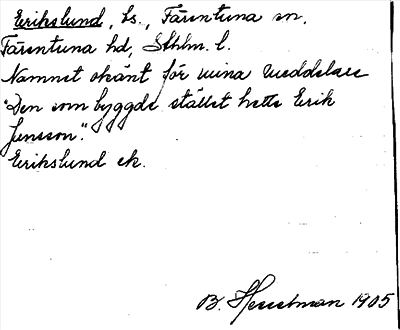 Erikslund, ts., Färentuna sn,
Färentuna hd, Sthlm. l.
Namnet okänt för mina meddelare
"Den som byggde stället hette Erik
Jansson."
Erikslund ek.
B. Hesselman 1905